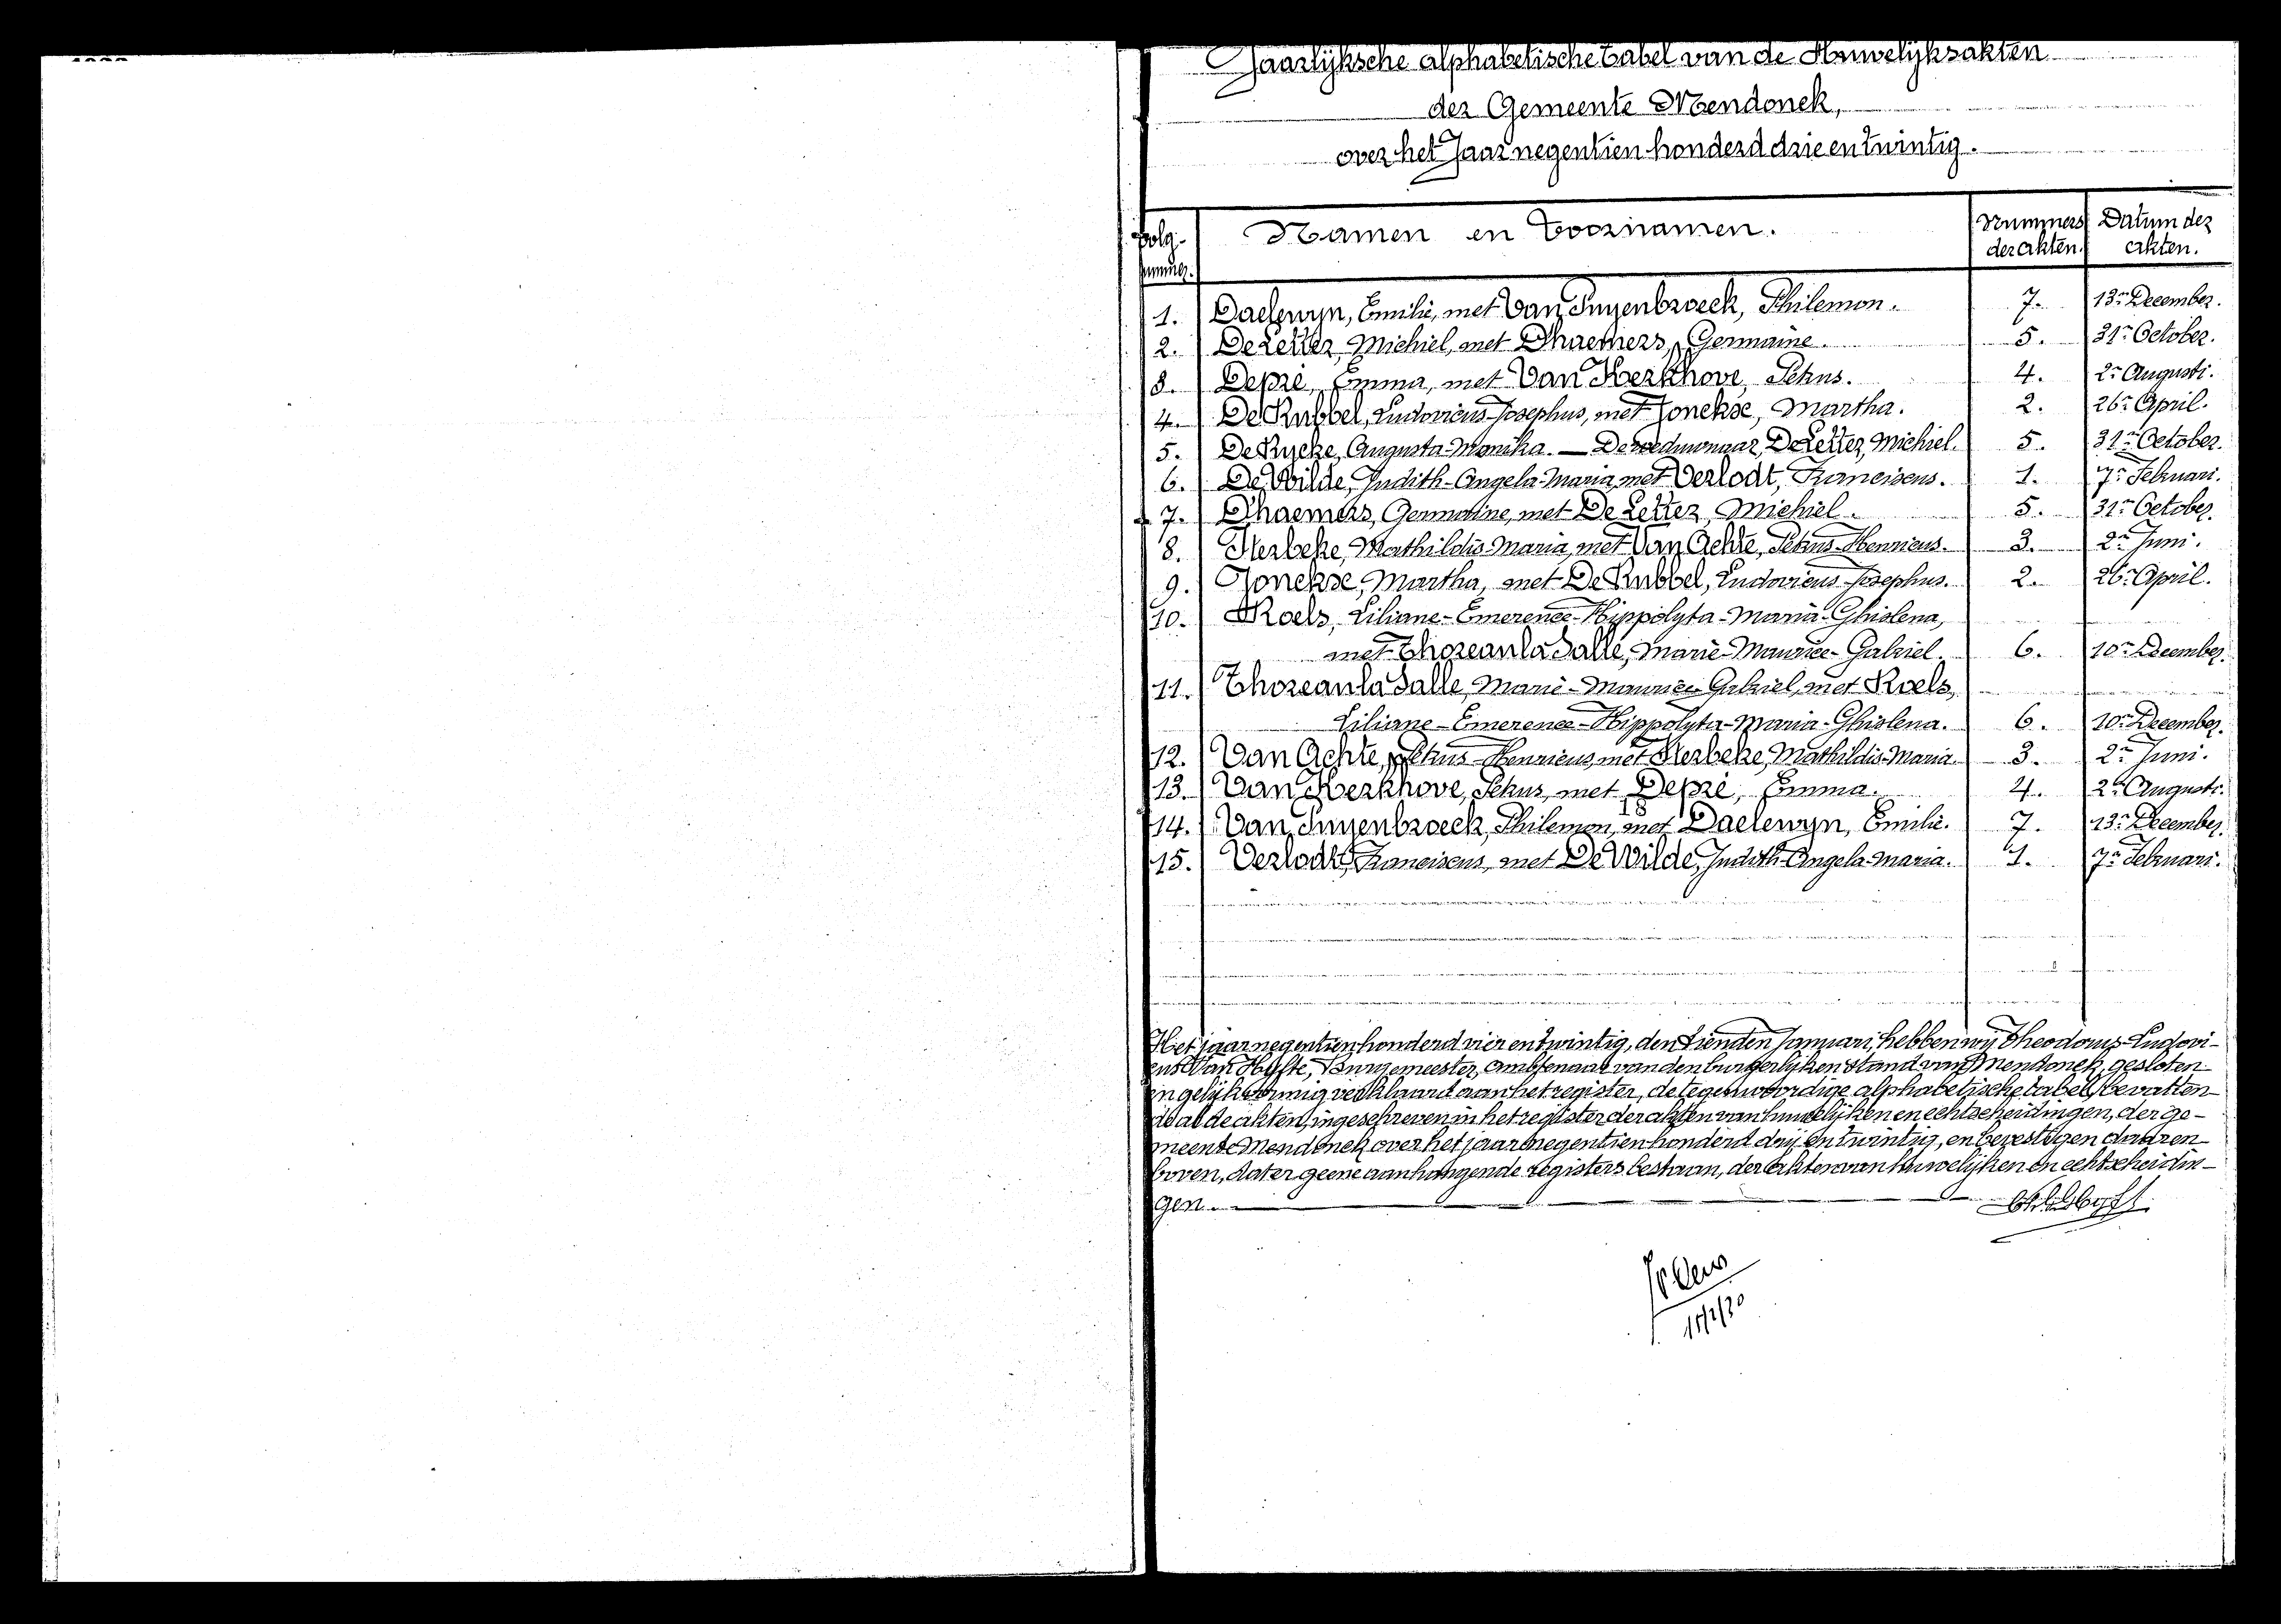 Jaarlijksche alphabetische tabel van de Huwelijksakten
der Gemeente Mendonck,
over het Jaar negentien honderd drie en twintig.
Volg-nummer. Namen en Voornamen. Nummers der akten. Datum der akten.
1. Daelewyn, Emilie, met Van Puyenbroeck, Philemon. 7. 13n December.
2. De Letter, Michiel, met Dhaemers, Germaine. 5. 31n October.
3. Depré, Emma, met Van Kerkhove, Petrus. 4. 2n Augusti.
4. De Rubbel, Ludovicus-Josephus, met Jonckse, Martha. 2. 26n April.
5. De Rycke, Augusta-Monika. — De weduwnaar, De Letter, Michiel. 5. 31n October.
6. De Wilde, Judith-Angela-Maria, met Verlodt, Franciscus. 1. 7n Februari.
7. Dhaemers, Germaine, met De Letter, Michiel. 5. 31n October.
8. Herbeke, Mathildis-Maria, met Van Achte, Petrus-Henricus. 3. 2n Juni.
9. Jonckse, Martha, met De Rubbel, Ludovicus-Josephus. 2. 26n April.
10. Roels, Liliane-Emerence-Hippolyta-Maria-Ghislena,
met Thoreau la Salle, Marie-Maurice-Gabriel. 6. 10n December.
11. Thoreau la Salle, Marie-Maurice Gabriel, met Roels,
Liliane-Emerence-Hippolyta-Maria-Ghislena. 6. 10n December.
12. Van Achte, Petrus-Henricus, met Herbeke, Mathildis-Maria. 3. 2n Juni.
13. Van Kerkhove, Petrus, met Depré, Emma. 4. 2n Augusti.
14. Van Puyenbroeck, Philemon, met Daelewyn, Emilie. 7. 13n December.
15. Verlodt, Franciscus, met De Wilde, Judith-Angela-Maria. 1. 7n Februari.
Het jaar negentien honderd vier en twintig, den tienden Januari, hebben wij Theodorus-Ludovi-
cus Van Hyfte, Burgemeester, ambtenaar van den burgerlijken stand van Mendonck, gesloten
en gelijkvormig verklaard aan het register, de tegenwoordige alphabetische tabel, bevatten-
de al de akten, ingeschreven in het register der akten van huwelijken en echtscheidingen, der ge-
meente Mendonck over het jaar negentien honderd drij en twintig, en bevestigen daaren-
boven, dat er geene aanhangende registers bestaan, der akten van huwelijken en echtscheidin-
gen.